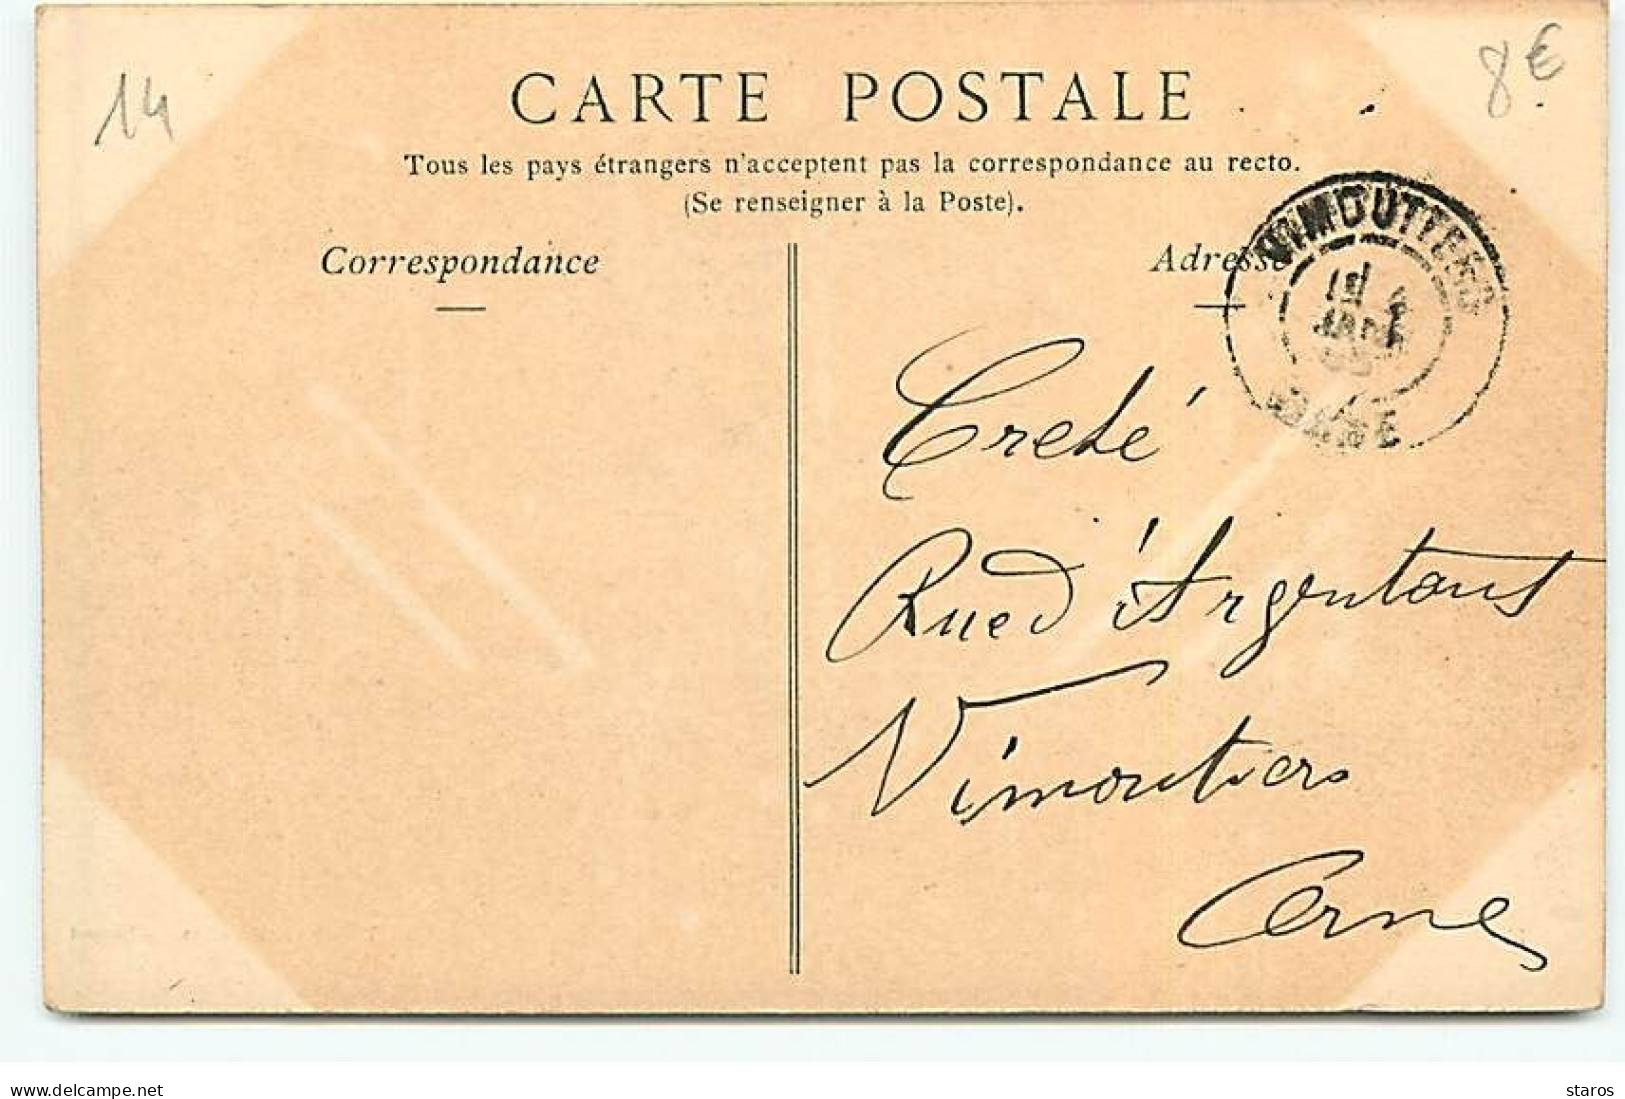 14
8€
CARTE POSTALE
Tous les pays étrangers n'acceptent pas la correspondance au recto.
(Se renseigner à la Poste).
Correspondance
Adresse
VIMOUTIERS
ORNE
Creté
Rue d'Argentans
Vimoutiers
Orne
www.delcampe.net
staros